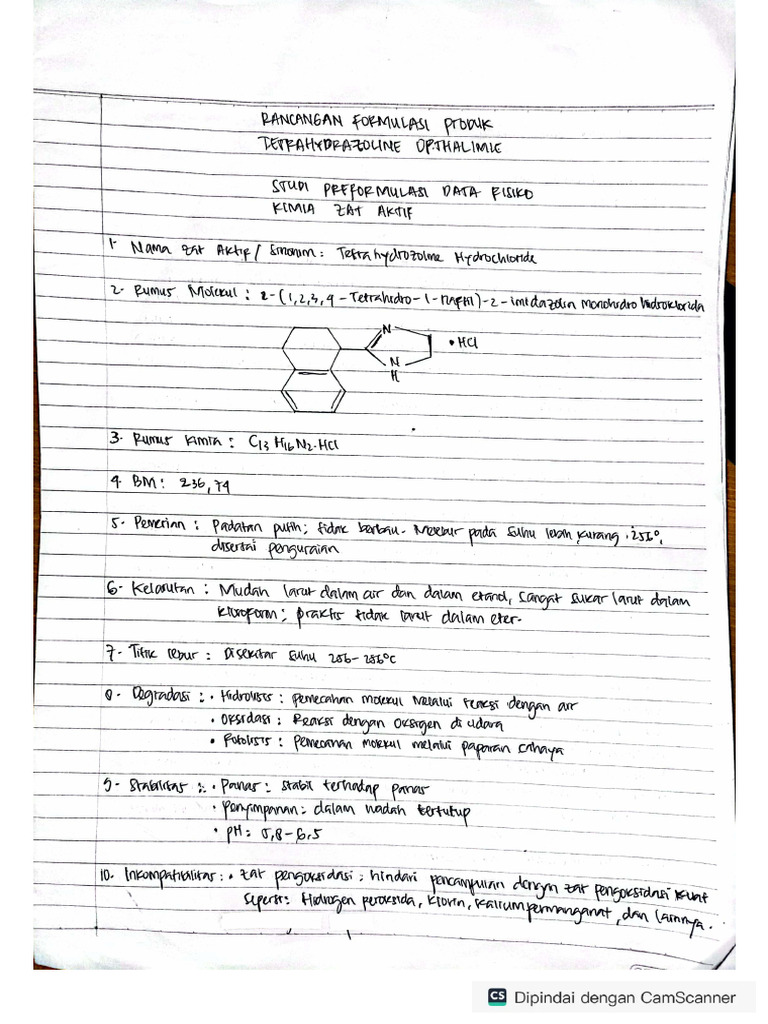 RANCANGAN FORMULASI PRODUK
TETRAHYDRAZOLINE OPTHALIMIC
STUDI PREFORMULASI DATA FISIKO
KIMIA ZAT AKTIF
1. Nama zat Aktif / Sinonim : Tetrahydrozoline Hydrochloride
2. Rumus Molekul : 2-(1,2,3,4-Tetrahidro-1-naftil)-2-imidazolin monohidro hidroklorida
N
N
H
• HCl
3. Rumus kimia : C13 H16 N2.HCl
4. BM : 236,74
5. Pemerian : Padatan putih; tidak berbau. Melebur pada suhu lebih kurang 256°,
disertai penguraian
6. Kelarutan : Mudah larut dalam air dan dalam etanol, sangat sukar larut dalam
kloroform; praktis tidak larut dalam eter.
7. Titik lebur : Disekitar suhu 256-256°C
8. Degradasi : • Hidrolisis : pemecahan molekul melalui reaksi dengan air
• Oksidasi : Reaksi dengan oksigen di udara
• Fotolisis : pemecahan molekul melalui paparan cahaya
9. Stabilitas : • Panas : stabil terhadap panas
• penyimpanan : dalam wadah tertutup
• pH : 5,8-6,5
10. Inkompatibilitas : • zat pengoksidasi : hindari pencampuran dengan zat pengoksidasi kuat
seperti : Hidrogen peroksida, klorin, kalium permanganat, dan lainnya.
CS Dipindai dengan CamScanner